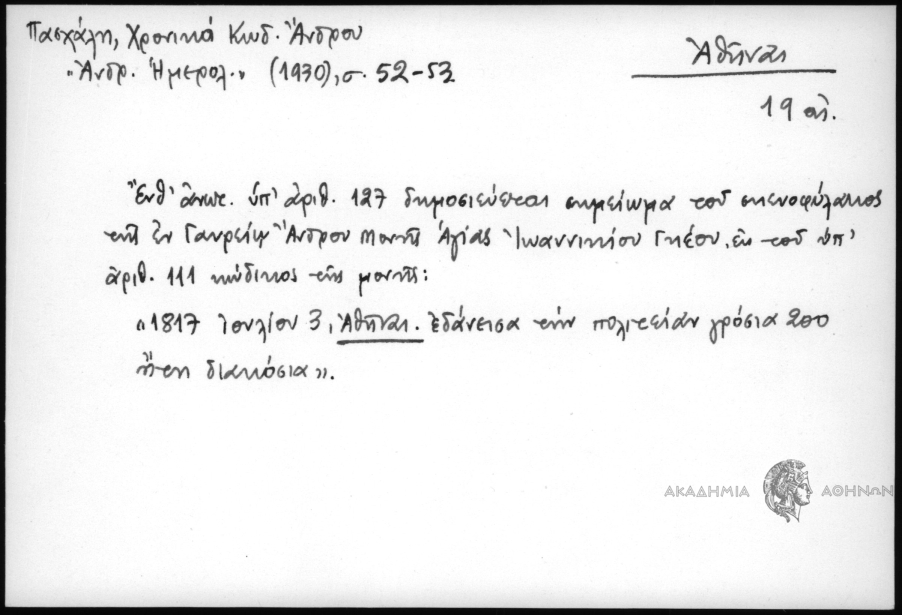 Πασχάλη, Χρονικά Κωδ. Ἄνδρου
"Ἀνδρ. Ἡμερολ." (1930), σ. 52-53
Ἀθῆναι
19 αἰ.
Ἔνθ' ἄνωτ. ὑπ' ἀριθ. 127 δημοσιεύεται σημείωμα τοῦ σκευοφύλακος
τῆς ἐν Γαυρείῳ Ἄνδρου Μονῆς Ἁγίας Ἰωαννικίου, ἐκ τοῦ ὑπ'
ἀριθ. 111 κώδικος τῆς μονῆς:
«1817 Ἰουλίου 3, Ἀθῆναι. ἐδάνεισα τὴν πολιτείαν γρόσια 200
ἤτοι διακόσια».
ΑΚΑΔΗΜΙΑ ΑΘΗΝΩΝ